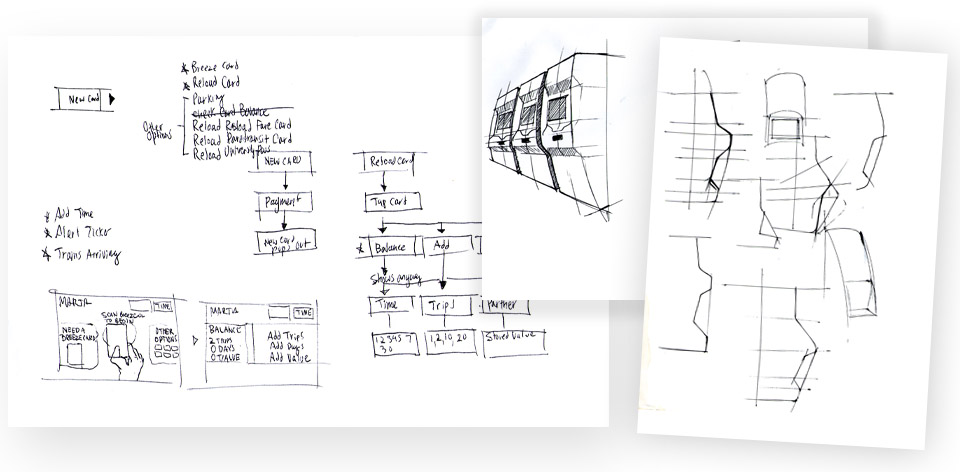 New Card
* Breeze Card
* Reload Card
Parking
check Card Balance
Other
Options
Reload Reload Fare Card
Reload Paratransit Card
Reload University Pass
NEW CARD
Payment
New Card
Pops out
Reload Card
Tap Card
* Balance
Add
Shows anyway
Time
Trips
Partner
1 2 3 4 5 7
30
1, 2, 10, 20
Stored Value
* Add Time
* Alert Ticker
* Trains Arriving
MARTA
TIME
NEED A
BREEZECARD
TO BEGIN
OTHER
OPTIONS
MARTA
TIME
BALANCE
2 TRIPS
0 DAYS
0 VALUE
Add Trips
Add Days
Add Value